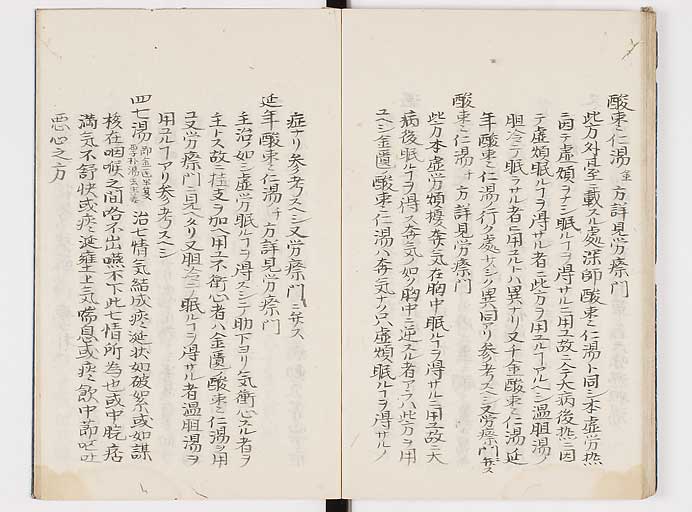 酸棗仁湯 金 方詳見労療門
此方外臺ニ載スル處深師酸棗仁湯ト同シ本虚労熱
ニ因テ虚煩ヲナシ眠ルヿヲ得サルニ用ユ故ニ今大病後熱ニ因
テ虚煩眠ルヿヲ得サル者ニ此方ヲ用ユルヿアルヘシ温胆湯ノ
胆冷ニテ眠ラサル者ニ用ユルトハ異ナリ又千金酸棗仁湯延
年酸棗仁湯ノ行ク處サスシク異同アリ参考スヘシ又労療門
酸棗仁湯 千 方詳見労療門
此方本虚労煩擾奔気在胸中眠ルヿヲ得サルニ用ユ故ニ大
病後眠ルヿヲ得ス奔気ノ如ク胸中ニ逆スル者アラハ此方ヲ用
ユヘシ金匱ノ酸棗仁湯ハ奔気ナクハ虚煩眠ルヿヲ得サルノ
症ナリ参考スヘシ又労療門ニ
延年酸棗仁湯 方詳見労療門
主治ノ如シ虚労眠ルヿヲ得スシテ肋下ヨリ気衝心スル者ヲ
主トス故ニ桂支ヲ加ヘ用ユ不衝心者ハ金匱ノ酸棗仁湯ヲ用
ユ又労療門ニ見ヘタリ又胆冷ニテ眠ルヿヲ得サル者温胆湯ヲ
用ユルヿアリ参考スヘシ
四七湯 治七情気結成痰涎状如破絮或如諜
核在咽喉之間咯不出嚥不下此七情所為也或中脘痞
満気不舒快或痰涎壅上気喘息或痰飲中節嘔吐
悪心之方